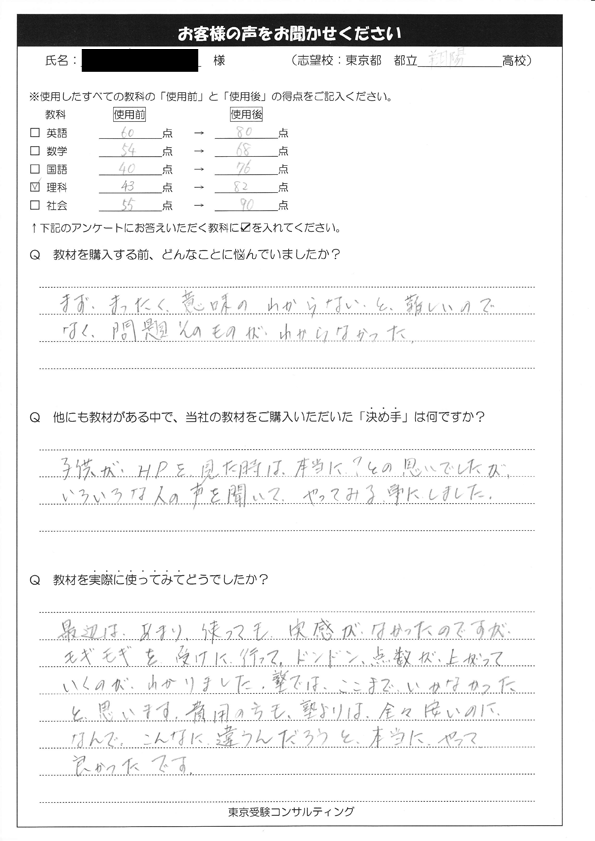 お客様の声をお聞かせください
氏名： 様 （志望校：東京都 都立 翔陽 高校）
※使用したすべての教科の「使用前」と「使用後」の得点をご記入ください。
教科 使用前 使用後
□ 英語 60 点 → 80 点
□ 数学 54 点 → 68 点
□ 国語 40 点 → 76 点
☑ 理科 43 点 → 82 点
□ 社会 55 点 → 90 点
↑下記のアンケートにお答えいただく教科に☑を入れてください。
Q 教材を購入する前、どんなことに悩んでいましたか？
まず、まったく、意味の わからない と、難しいので
なく、問題 そのものが、わからなかった。
Q 他にも教材がある中で、当社の教材をご購入いただいた「決め手」は何ですか？
子供が、HPを、見た時は、本当に？との思いでしたが、
いろいろな人の声を聞いて、やってみる事にしました。
Q 教材を実際に使ってみてどうでしたか？
最初は、あまり、使っても、実感が、なかったのですが、
モギモギを、受けに、行って、ドンドン、点数が、上がって
いくのが、わかりました。塾では、ここまで、いかなかった
と、思います。費用の方も、塾よりは、全々安いのに、
なんで、こんなに、違うんだろうと、本当に、やって
良かったです。
東京受験コンサルティング